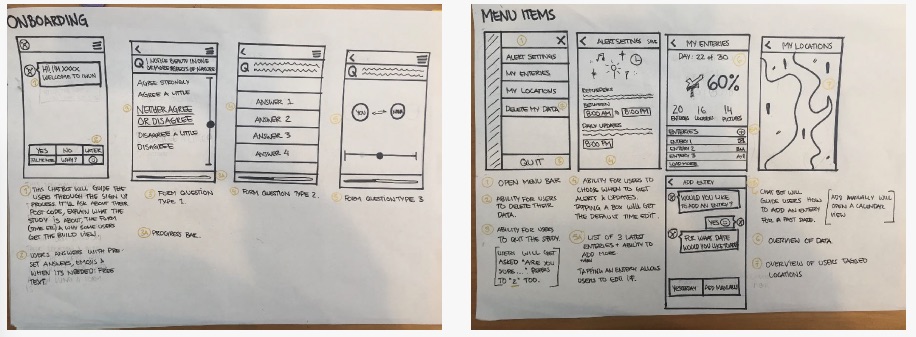 ONBOARDING
HI! I'M XXXX
WELCOME TO
YES NO LATER
WHAT?
Q I NOTICE BEAUTY IN ONE
OR MORE ASPECTS OF NATURE
AGREE STRONGLY
AGREE A LITTLE
NEITHER AGREE
OR DISAGREE
DISAGREE A LITTLE
DISAGREE
Q
ANSWER 1
ANSWER 2
ANSWER 3
ANSWER 4
Q
YOU
1 THIS CHATBOT WILL GUIDE THE
USERS THROUGH THE SIGN UP
PROCESS. IT'LL ASK ABOUT THEIR
POST CODE, EXPLAIN WHAT THE
STUDY IS ABOUT, THE FLOW
& WHY SOME USERS
GET THE BUILD VIEW.
2 USERS ANSWERS WITH PRE-
SET ANSWERS, EMOJIS &
WHEN IT'S NEEDED FREE
TEXT.
3 FORM QUESTION
TYPE 1.
3a PROGRESS BAR.
4 FORM QUESTION TYPE 2.
5 FORM QUESTION TYPE 3
MENU ITEMS
1 X
ALERT SETTINGS
MY ENTERIES
MY LOCATIONS
DELETE MY DATA
QUIT
ALERT SETTINGS SAVE
BETWEEN
8:00 AM & 8:00 PM
DAILY UPDATES
8:00 PM
MY ENTERIES
DAY: 22 of 30
60%
20 16 14
ENTERIES PICTURES
ENTERIES
ENTERY 1
ENTERY 2
ENTERY 3
LOAD MORE
MY LOCATIONS
ADD ENTRY
WOULD YOU LIKE
TO ADD AN ENTERY?
YES
FOR WHAT DATE
WOULD YOU LIKE TO ADD
YESTERDAY ADD MANUALLY
1 OPEN MENU BAR
2 ABILITY FOR USERS
TO DELETE THEIR
DATA.
3 ABILITY FOR USERS
TO QUIT THE STUDY.
USERS WILL GET
ASKED "ARE YOU
SURE..." 
TO "2" TOO.
4 ABILITY FOR USERS TO
CHOOSE WHEN TO GET
ALERT & UPDATES.
TAPPING A BOX WILL GET
THE DEFAULT TIME EDIT.
5a LIST OF 3 LATEST
ENTERIES + ABILITY TO
ADD MORE
TAPPING AN ENTERY ALLOWS
USERS TO EDIT IT.
CHATBOT WILL
GUIDE USERS HOW
TO ADD AN ENTERY
FOR A PAST DATE.
ADD MANUALLY WILL
OPEN A CALENDAR
VIEW
OVERVIEW OF DATA
OVERVIEW OF USERS TAGGED
LOCATIONS